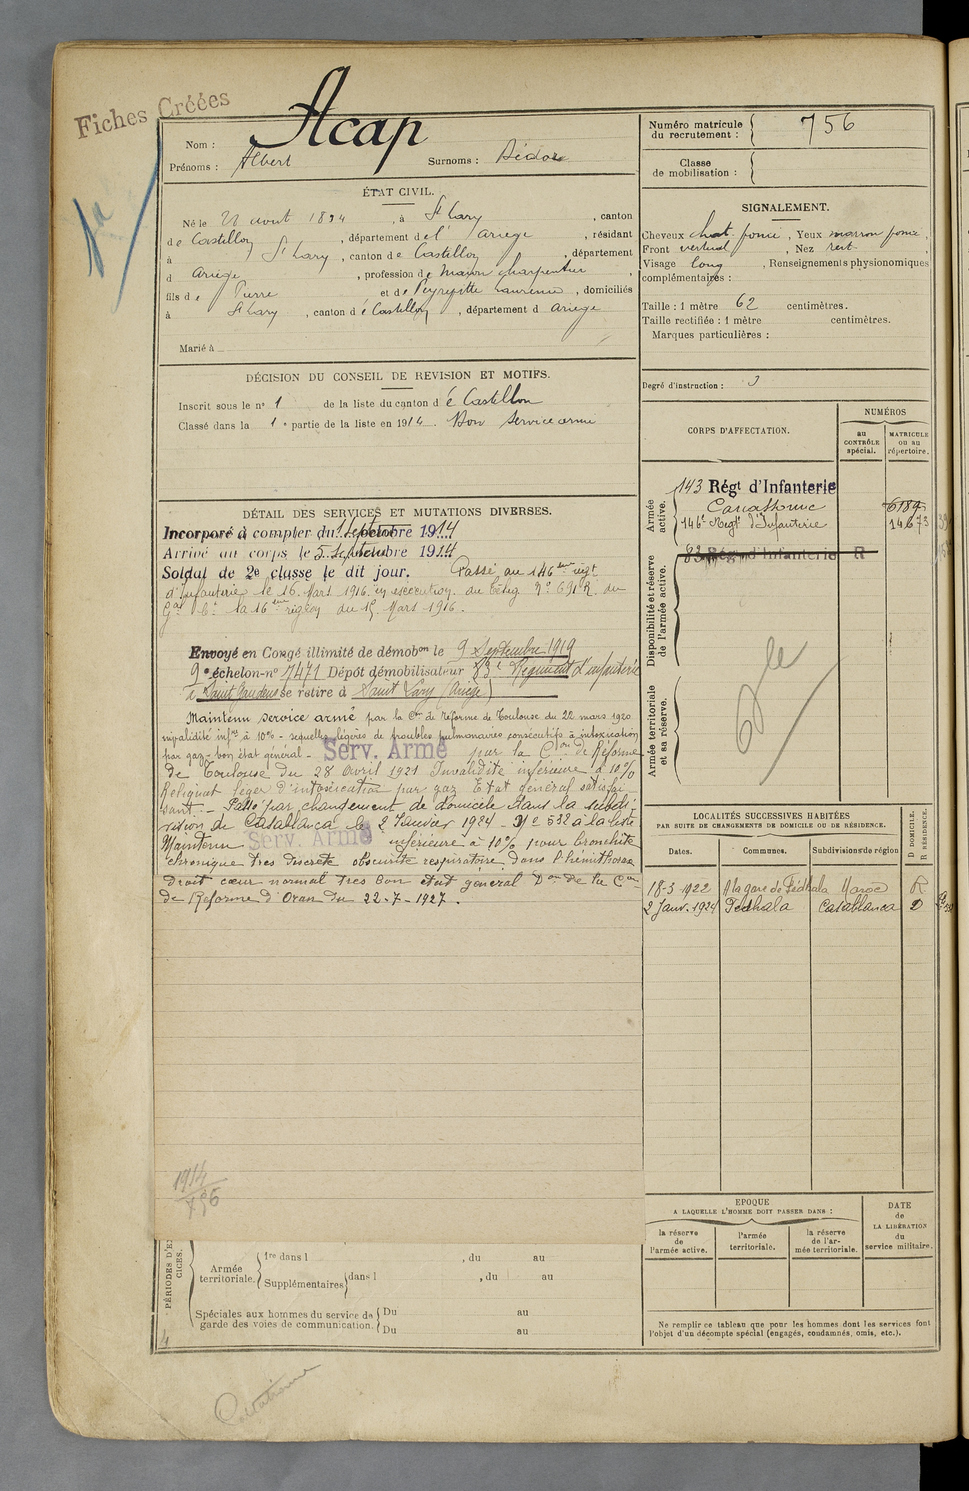 Fiches Créées
Nom : Acap
Prénoms : Albert Surnoms : Isidore
Numéro matricule du recrutement : 756
Classe de mobilisation :
ÉTAT CIVIL.
Né le 28 août 1894, à St Lary, canton
de Castillon, département de l' Ariège, résidant
à St Lary, canton de Castillon, département
d Ariège, profession de maçon charpentier,
fils de Pierre et de Peyrefitte Laurence, domiciliés
à St Lary, canton de Castillon, département d Ariège
Marié à
SIGNALEMENT.
Cheveux chat. foncé, Yeux marron foncé,
Front vertical, Nez rect.
Visage long, Renseignements physionomiques
complémentaires :
Taille : 1 mètre 62 centimètres.
Taille rectifiée : 1 mètre centimètres.
Marques particulières :
Degré d'instruction : 3
DÉCISION DU CONSEIL DE REVISION ET MOTIFS.
Inscrit sous le n° 1 de la liste du canton de Castillon
Classé dans la 1e partie de la liste en 1914. Bon service armé
DÉTAIL DES SERVICES ET MUTATIONS DIVERSES.
Incorporé à compter du 1 Septembre 1914
Arrivé au corps le 5 Septembre 1914
Soldat de 2e classe le dit jour. Passé au 146ème régt
d'Infanterie le 16 Mars 1916 en exécution du Télég N° 691 R. du
Gal Ct la 16ème région du 15 Mars 1916.
Envoyé en Congé illimité de démobon le 9 Septembre 1919
9e échelon n° 7471 Dépôt démobilisateur 83e Régiment d'infanterie
à Saint Gaudens se retire à Saint Lary (Ariège)
Maintenu service armé par la Con de réforme de Toulouse du 22 mars 1920
invalidité infre à 10% - sequelles légères de troubles pulmonaires consécutifs à intoxication
par gaz - bon état général - Serv. Armé par la Con de Réforme
de Toulouse du 28 Avril 1921 Invalidité inférieure à 10%
Reliquat léger d'intoxication par gaz Etat général satisfai
sant. - Passé par changement de domicile dans la subdi
vision de Casablanca le 2 Janvier 1924 - N° 532 à la liste
Maintenu Serv. Armé inférieure à 10% pour bronchite
chronique très discrète obscurité respiratoire dans l'hémithorax
droit cœur normal très bon état général Don de la Con
de Réforme d'Oran du 22-7-1927.
CORPS D'AFFECTATION.
NUMÉROS
au CONTRÔLE spécial.
MATRICULE ou au répertoire.
Armée active.
143 Régt d'Infanterie
Carcassonne 6189
146e Régt d'Infanterie 14673
Disponibilité et réserve de l'armée active.
83 Régt d'Infanterie R
Armée territoriale et sa réserve.
LOCALITÉS SUCCESSIVES HABITÉES
PAR SUITE DE CHANGEMENTS DE DOMICILE OU DE RÉSIDENCE.
Dates. Communes. Subdivisions de région D DOMICILE. R RÉSIDENCE.
18-3-1922 A la gare de Fédhala Maroc R
2 Janv. 1924 Fédhala Casablanca D
1914
756
EPOQUE
A LAQUELLE L'HOMME DOIT PASSER DANS :
la réserve de l'armée active.
l'armée territoriale.
la réserve de l'armée territoriale.
DATE de LA LIBÉRATION du service militaire.
PÉRIODES D'EX
CICES.
Armée territoriale.
1re dans l , du au
Supplémentaires dans l , du au
Spéciales aux hommes du service de garde des voies de communication.
Du au
Du au
Ne remplir ce tableau que pour les hommes dont les services font
l'objet d'un décompte spécial (engagés, condamnés, omis, etc.).